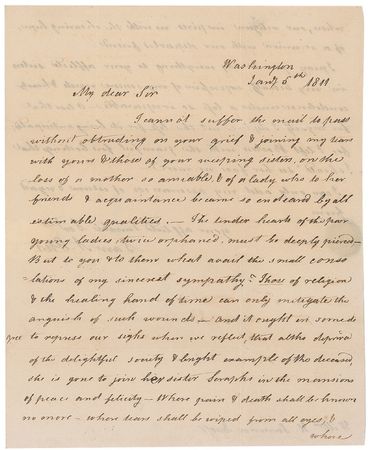 Washington
Jany 5th 1811
My dear Sir
I cannot suffer the mail to pass
without obtruding on your grief & joining my tears
with yours & those of your weeping sisters, on the
loss of a mother so amiable, & of a lady who to her
friends & acquaintance became so endeared by all
estimable qualities. — The tender hearts of the poor
young ladies, twice orphaned, must be deeply pierced —
But to you & to them what avail the small conso
lations of my sincerest sympathy? Those of religion
& the healing hand of time can only mitigate the
anguish of such wounds — and it ought in some de
gree to repress our sighs when we reflect, that altho deprived
of the delightful society & bright example of the deceased
she is gone to join her sister Seraphs in the mansions
of peace and felicity — Where pain & death shall be known
no more — where tears shall be wiped from all eyes, &
where